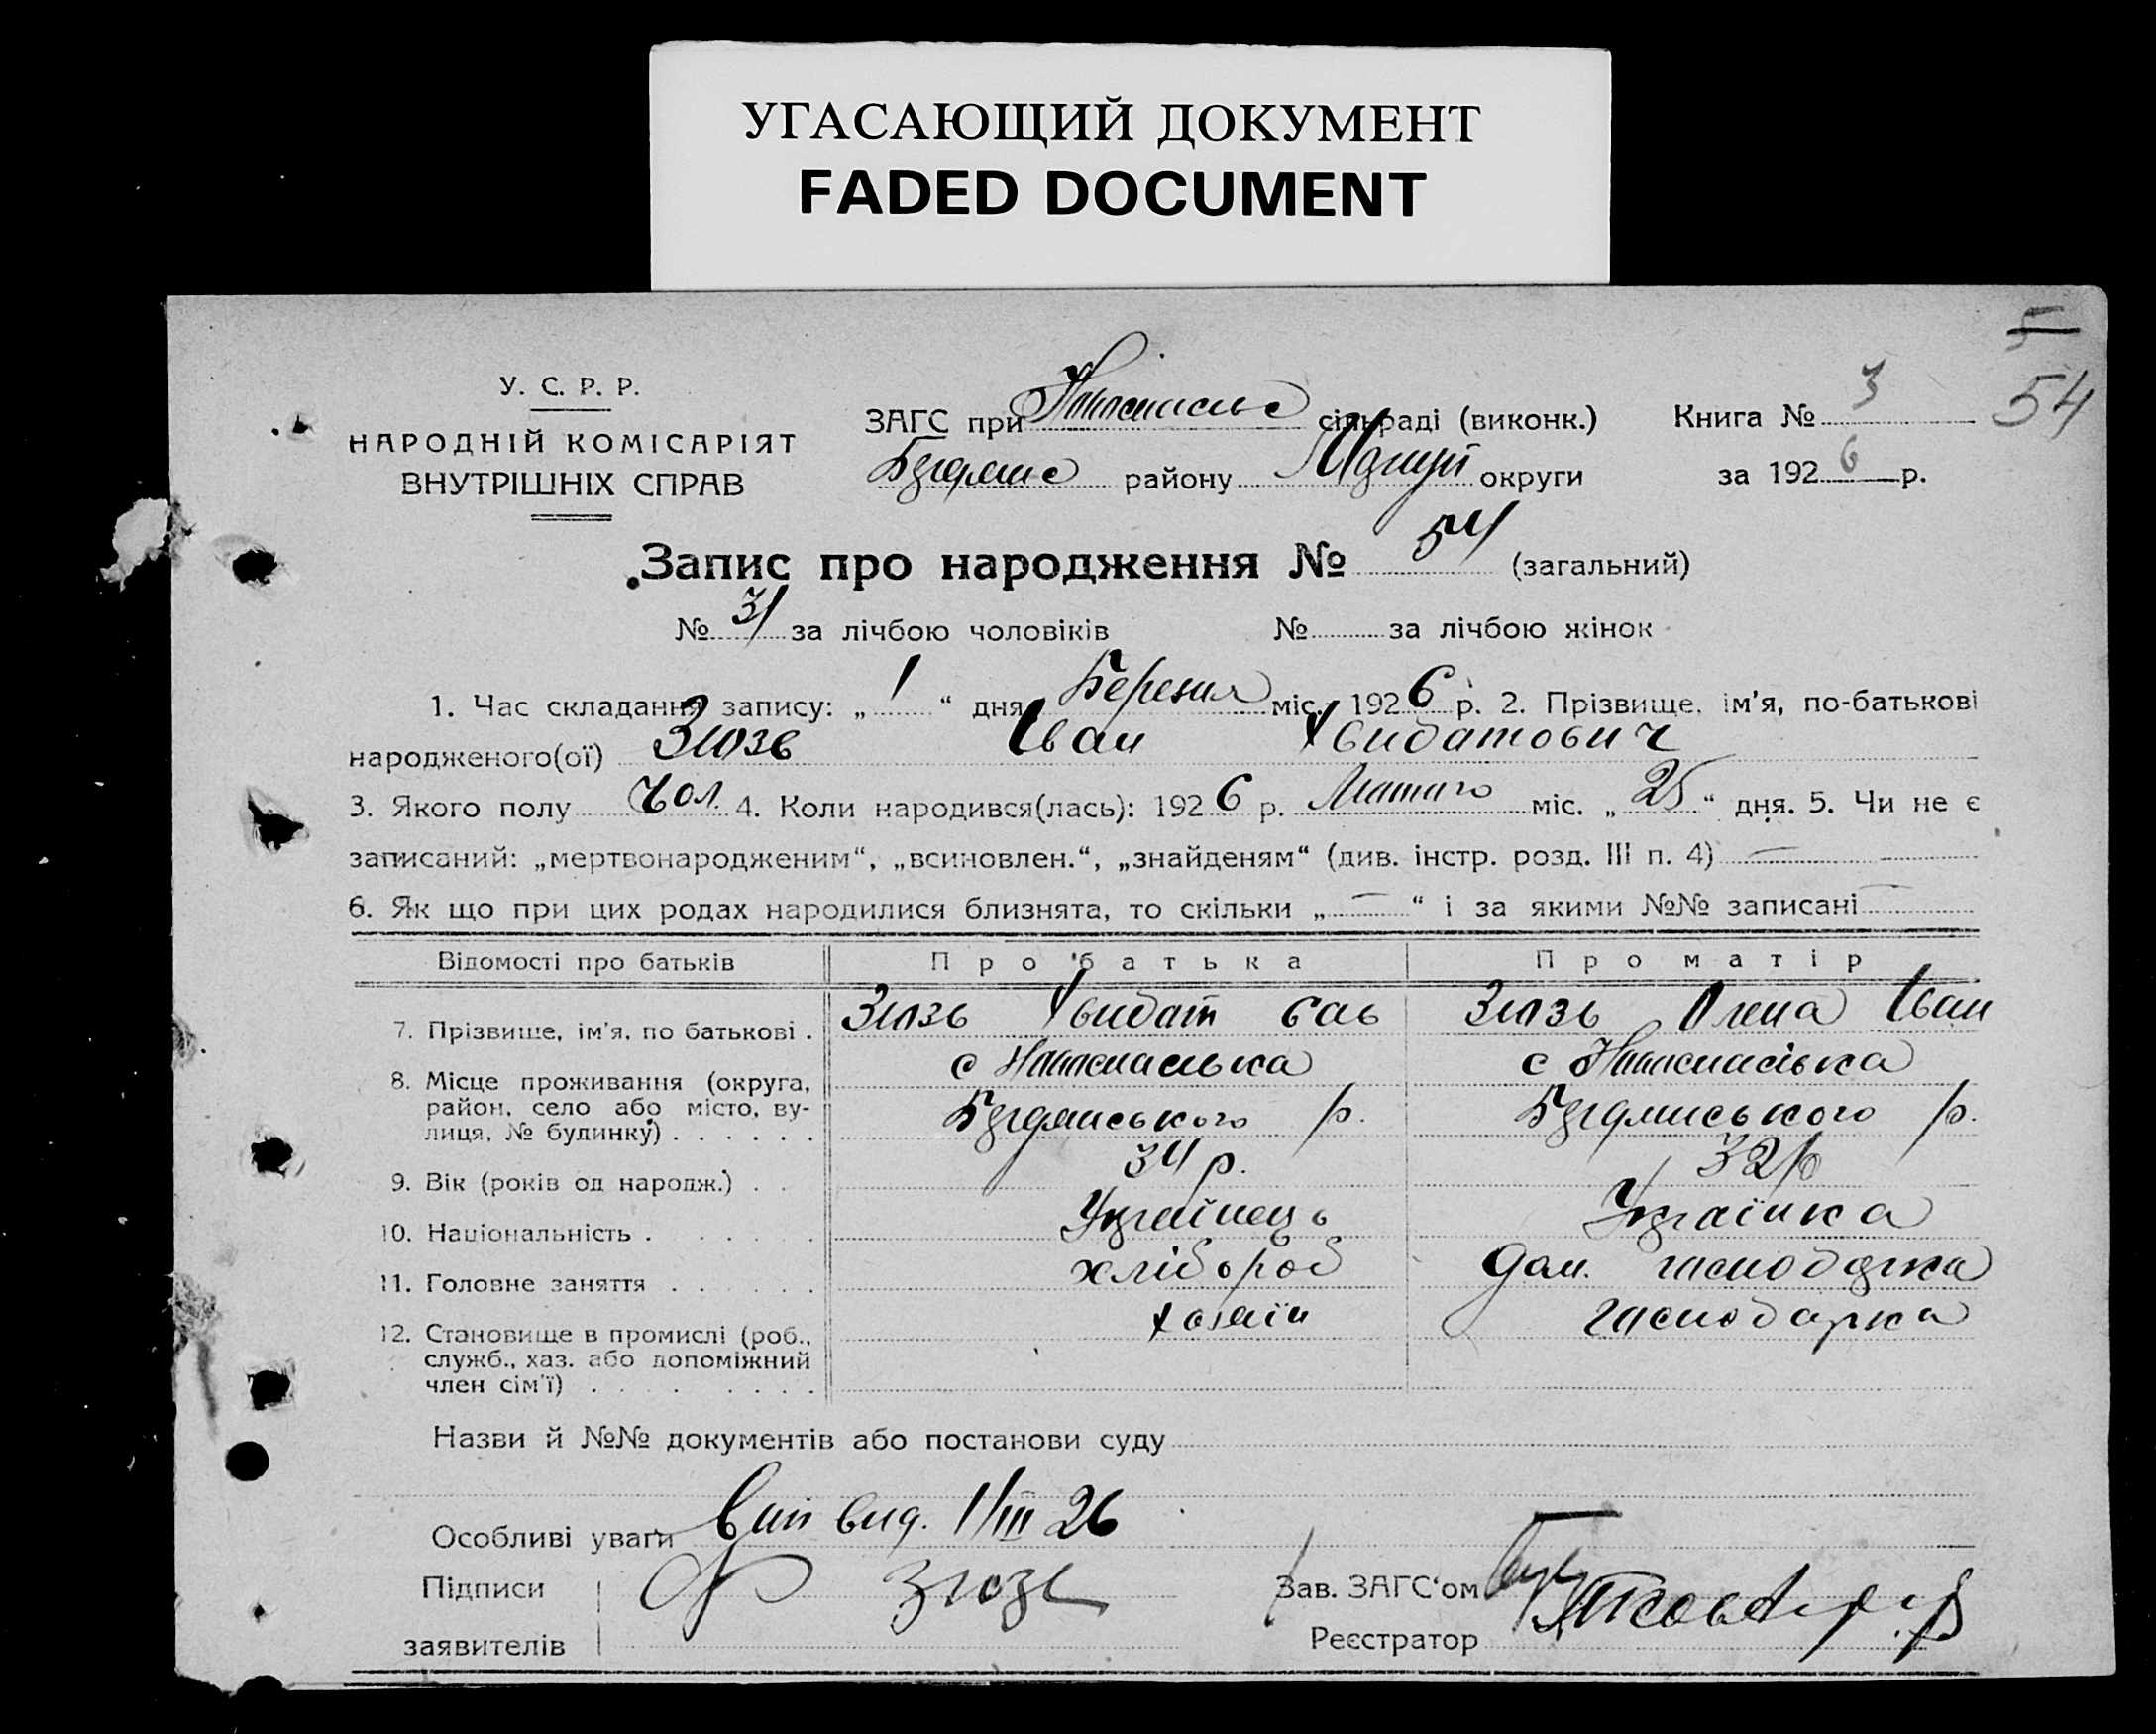 УГАСАЮЩИЙ ДОКУМЕНТ
FADED DOCUMENT
5
54
У. С. Р. Р.
НАРОДНІЙ КОМІСАРІЯТ
ВНУТРІШНІХ СПРАВ
ЗАГС при сільраді (виконк.) Книга № 3
району округи за 1926 р.
Запис про народження № 54 (загальний)
№ 31 за лічбою чоловіків № за лічбою жінок
1. Час складання запису: „ 1 “ дня Березня міс. 1926 р. 2. Прізвище, ім'я, по-батькові
народженого(ої) Зюзь Іван
3. Якого полу Чол. 4. Коли народився(лась): 1926 р. Лютаго міс. „ 25 “ дня. 5. Чи не є
записаний: „мертвонародженим“, „всиновлен.“, „знайденям“ (див. інстр. розд. III п. 4) —
6. Як що при цих родах народилися близнята, то скільки „ — “ і за якими №№ записані —
Відомості про батьків Про батька Про матір
7. Прізвище, ім'я, по батькові . Зюзь Сав Зюзь Олена Іван
8. Місце проживання (округа, с с
район, село або місто, ву- р. р.
лиця, № будинку) . . . . . .
9. Вік (років од народж.) . . 34 р. 32 р
10. Національність . . . . . . Українець Українка
11. Головне заняття . . . . . . хлібороб Дом. господарка
12. Становище в промислі (роб., хазяїн господарка
служб., хаз. або допоміжний
член сім'ї) . . . . . . . .
Назви й №№ документів або постанови суду
Особливі уваги Вип вид. 1/III 26
Підписи Зюзь Зав. ЗАГС'ом
заявителів Реєстратор